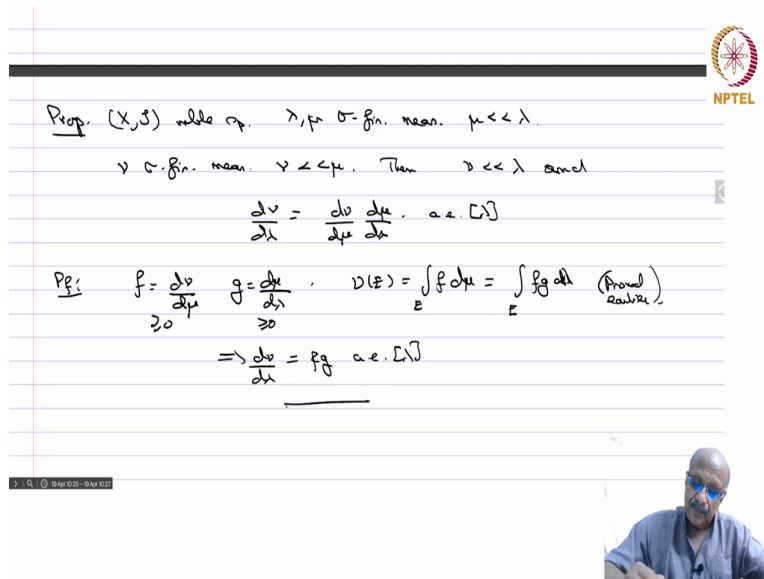 NPTEL
Prop. (X, S) mble sp. λ, μ σ-fin. meas. μ << λ.
ν σ-fin. meas. ν << μ. Then ν << λ and
dν/dλ = dν/dμ dμ/dλ. a.e. [λ]
Pf: f = dν/dμ ≥0 g = dμ/dλ ≥0. ν(E) = ∫_E f dμ = ∫_E fg dλ (Proved earlier).
=> dν/dλ = fg a.e. [λ]
19 Apr 10:25 – 19 Apr 10:27